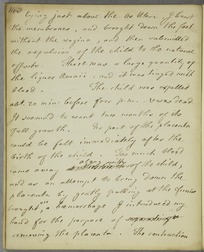 lying just above the os uteri. I burst
the membranes, and brought down the feet
without the vagina, and then submitted
the expulsion of the child to the natural
efforts. There was a large quantity of
the liquor Amnii, and it was tinged with
blood. The child was expelled
at 20 min: before four p.m. & was dead
It seemed to want two months of its
full growth. No part of the placenta
could be felt immediately after the
birth of the child. Some blood
came away of the child,
and as an attempt to bring down the
placenta by gently pulling at the funis
brought on a hæmorrhage I introduced my
hand for the purpose of
removing the placenta. The contraction